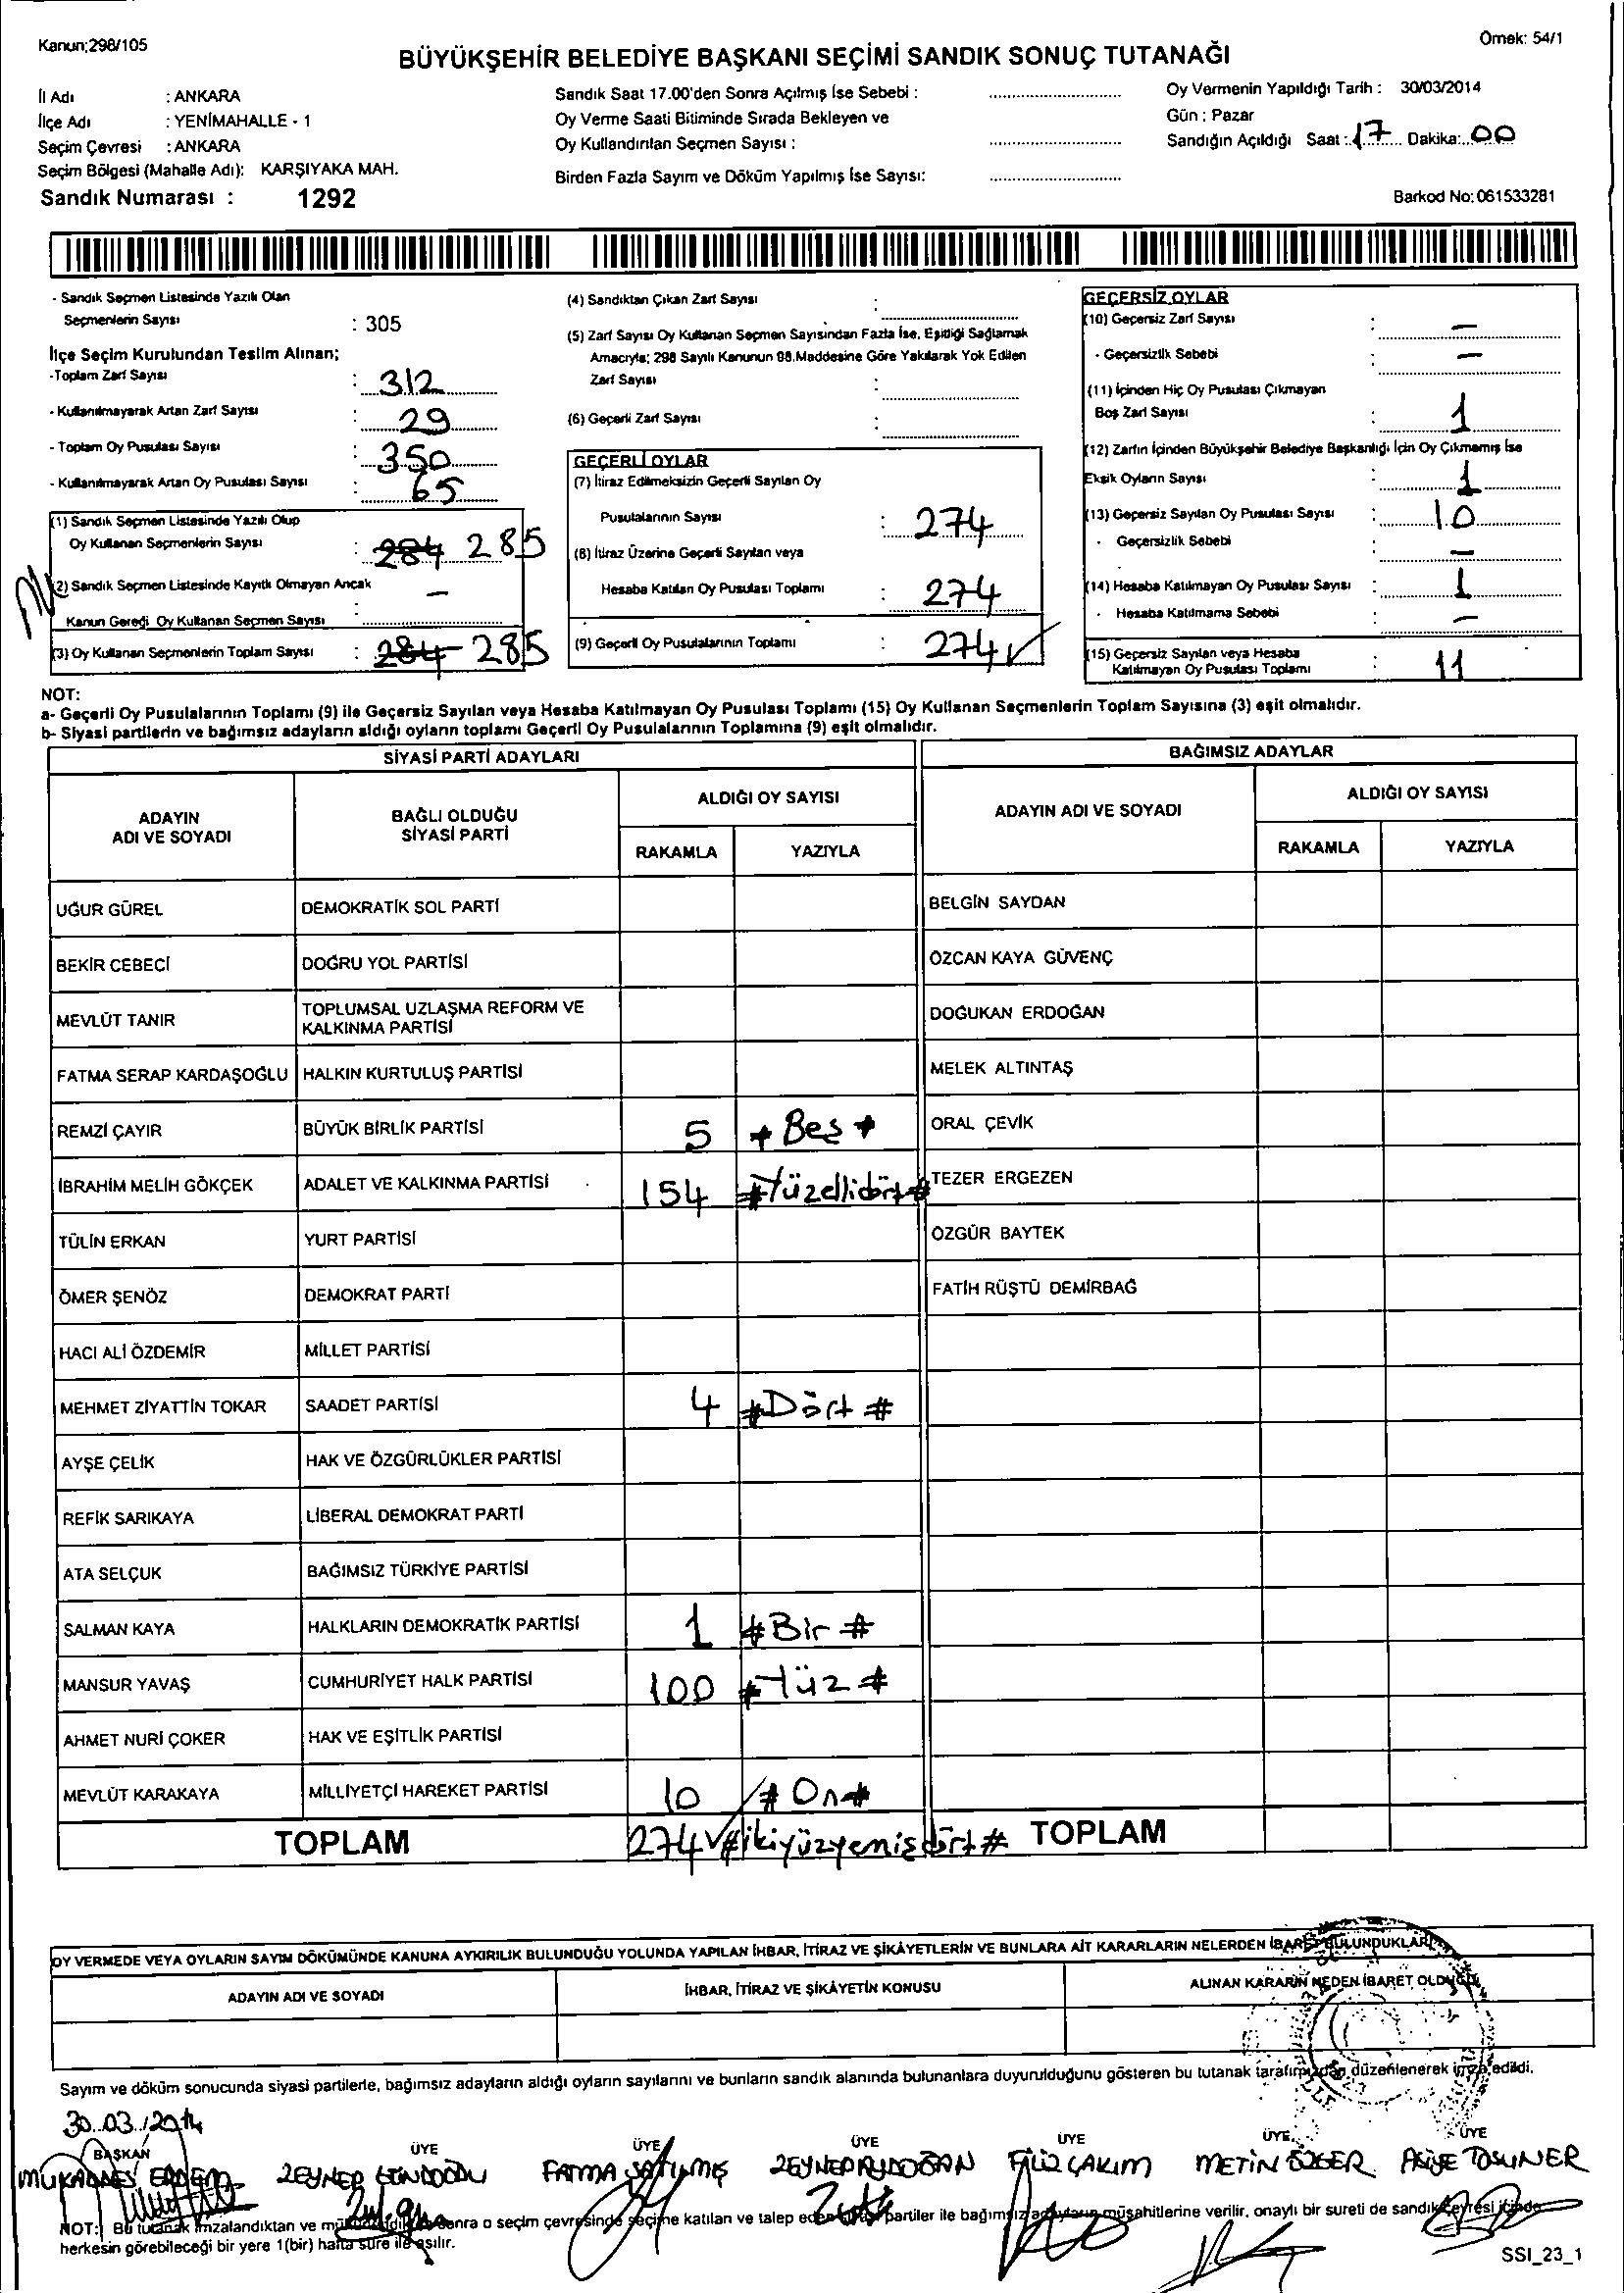 Kanun;298/105
Örnek: 54/1
BÜYÜKŞEHİR BELEDİYE BAŞKANI SEÇİMİ SANDIK SONUÇ TUTANAĞI
İl Adı : ANKARA
İlçe Adı : YENİMAHALLE - 1
Seçim Çevresi : ANKARA
Seçim Bölgesi (Mahalle Adı): KARŞIYAKA MAH.
Sandık Numarası : 1292
Sandık Saat 17.00'den Sonra Açılmış İse Sebebi :
Oy Verme Saati Bitiminde Sırada Bekleyen ve
Oy Kullandırılan Seçmen Sayısı :
Birden Fazla Sayım ve Döküm Yapılmış İse Sayısı:
Oy Vermenin Yapıldığı Tarih : 30/03/2014
Gün : Pazar
Sandığın Açıldığı Saat : 17 Dakika: 00
Barkod No: 061533281
- Sandık Seçmen Listesinde Yazılı Olan
Seçmenlerin Sayısı : 305
İlçe Seçim Kurulundan Teslim Alınan;
-Toplam Zarf Sayısı : 312
- Kullanılmayarak Artan Zarf Sayısı : 29
- Toplam Oy Pusulası Sayısı : 350
- Kullanılmayarak Artan Oy Pusulası Sayısı : 65
(1) Sandık Seçmen Listesinde Yazılı Olup
Oy Kullanan Seçmenlerin Sayısı : 284 285
(2) Sandık Seçmen Listesinde Kayıtlı Olmayan Ancak
Kanun Gereği Oy Kullanan Seçmen Sayısı : -
(3) Oy Kullanan Seçmenlerin Toplam Sayısı : 284 285
(4) Sandıktan Çıkan Zarf Sayısı :
(5) Zarf Sayısı Oy Kullanan Seçmen Sayısından Fazla İse, Eşitliği Sağlamak
Amacıyla; 298 Sayılı Kanunun 98.Maddesine Göre Yakılarak Yok Edilen
Zarf Sayısı :
(6) Geçerli Zarf Sayısı :
GEÇERLİ OYLAR
(7) İtiraz Edilmeksizin Geçerli Sayılan Oy
Pusulalarının Sayısı : 274
(8) İtiraz Üzerine Geçerli Sayılan veya
Hesaba Katılan Oy Pusulası Toplamı : 274
(9) Geçerli Oy Pusulalarının Toplamı : 274
GEÇERSİZ OYLAR
(10) Geçersiz Zarf Sayısı : -
- Geçersizlik Sebebi : -
(11) İçinden Hiç Oy Pusulası Çıkmayan
Boş Zarf Sayısı : 1
(12) Zarfın İçinden Büyükşehir Belediye Başkanlığı İçin Oy Çıkmamış İse
Eksik Oyların Sayısı : 1
(13) Geçersiz Sayılan Oy Pusulası Sayısı : 10
- Geçersizlik Sebebi : -
(14) Hesaba Katılmayan Oy Pusulası Sayısı : 1
- Hesaba Katılmama Sebebi : -
(15) Geçersiz Sayılan veya Hesaba
Katılmayan Oy Pusulası Toplamı : 11
NOT:
a- Geçerli Oy Pusulalarının Toplamı (9) ile Geçersiz Sayılan veya Hesaba Katılmayan Oy Pusulası Toplamı (15) Oy Kullanan Seçmenlerin Toplam Sayısına (3) eşit olmalıdır.
b- Siyasi partilerin ve bağımsız adayların aldığı oyların toplamı Geçerli Oy Pusulalarının Toplamına (9) eşit olmalıdır.
SİYASİ PARTİ ADAYLARI
BAĞIMSIZ ADAYLAR
ADAYIN ADI VE SOYADI
BAĞLI OLDUĞU SİYASİ PARTİ
ALDIĞI OY SAYISI
RAKAMLA YAZIYLA
ADAYIN ADI VE SOYADI
ALDIĞI OY SAYISI
RAKAMLA YAZIYLA
UĞUR GÜREL DEMOKRATİK SOL PARTİ BELGİN SAYDAN
BEKİR CEBECİ DOĞRU YOL PARTİSİ ÖZCAN KAYA GÜVENÇ
MEVLÜT TANIR TOPLUMSAL UZLAŞMA REFORM VE KALKINMA PARTİSİ DOĞUKAN ERDOĞAN
FATMA SERAP KARDAŞOĞLU HALKIN KURTULUŞ PARTİSİ MELEK ALTINTAŞ
REMZİ ÇAYIR BÜYÜK BİRLİK PARTİSİ 5 # Beş # ORAL ÇEVİK
İBRAHİM MELİH GÖKÇEK ADALET VE KALKINMA PARTİSİ 154 #Yüzellidört# TEZER ERGEZEN
TÜLİN ERKAN YURT PARTİSİ ÖZGÜR BAYTEK
ÖMER ŞENÖZ DEMOKRAT PARTİ FATİH RÜŞTÜ DEMİRBAĞ
HACI ALİ ÖZDEMİR MİLLET PARTİSİ
MEHMET ZİYATTİN TOKAR SAADET PARTİSİ 4 #Dört #
AYŞE ÇELİK HAK VE ÖZGÜRLÜKLER PARTİSİ
REFİK SARIKAYA LİBERAL DEMOKRAT PARTİ
ATA SELÇUK BAĞIMSIZ TÜRKİYE PARTİSİ
SALMAN KAYA HALKLARIN DEMOKRATİK PARTİSİ 1 #Bir #
MANSUR YAVAŞ CUMHURİYET HALK PARTİSİ 100 #Yüz #
AHMET NURİ ÇOKER HAK VE EŞİTLİK PARTİSİ
MEVLÜT KARAKAYA MİLLİYETÇİ HAREKET PARTİSİ 10 # On#
TOPLAM 274 #ikiyüzyemişdört# TOPLAM
OY VERMEDE VEYA OYLARIN SAYIM DÖKÜMÜNDE KANUNA AYKIRILIK BULUNDUĞU YOLUNDA YAPILAN İHBAR, İTİRAZ VE ŞİKÂYETLERİN VE BUNLARA AİT KARARLARIN NELERDEN İBARET BULUNDUKLARI
ADAYIN ADI VE SOYADI
İHBAR, İTİRAZ VE ŞİKÂYETİN KONUSU
ALINAN KARARIN NEDEN İBARET OLDUĞU
Sayım ve döküm sonucunda siyasi partilerle, bağımsız adayların aldığı oyların sayılarını ve bunların sandık alanında bulunanlara duyurulduğunu gösteren bu tutanak tarafımızdan düzenlenerek imza edildi.
30.03./2014
BAŞKAN ÜYE ÜYE ÜYE ÜYE ÜYE ÜYE
MUKADDES ERDEM ZEYNEP GÜNDOĞDU FATMA SATILMIŞ ZEYNEP AYDOĞAN FİLİZ ÇAKIM METİN ÖZGER ASİYE TOSUNER
NOT: Bu tutanak imzalandıktan ve mühürlendikten sonra o seçim çevresinde seçime katılan ve talep eden siyasi partiler ile bağımsız adayların müşahitlerine verilir, onaylı bir sureti de sandık çevresi içinde
herkesin görebileceği bir yere 1(bir) hafta süre ile asılır.
SSI_23_1